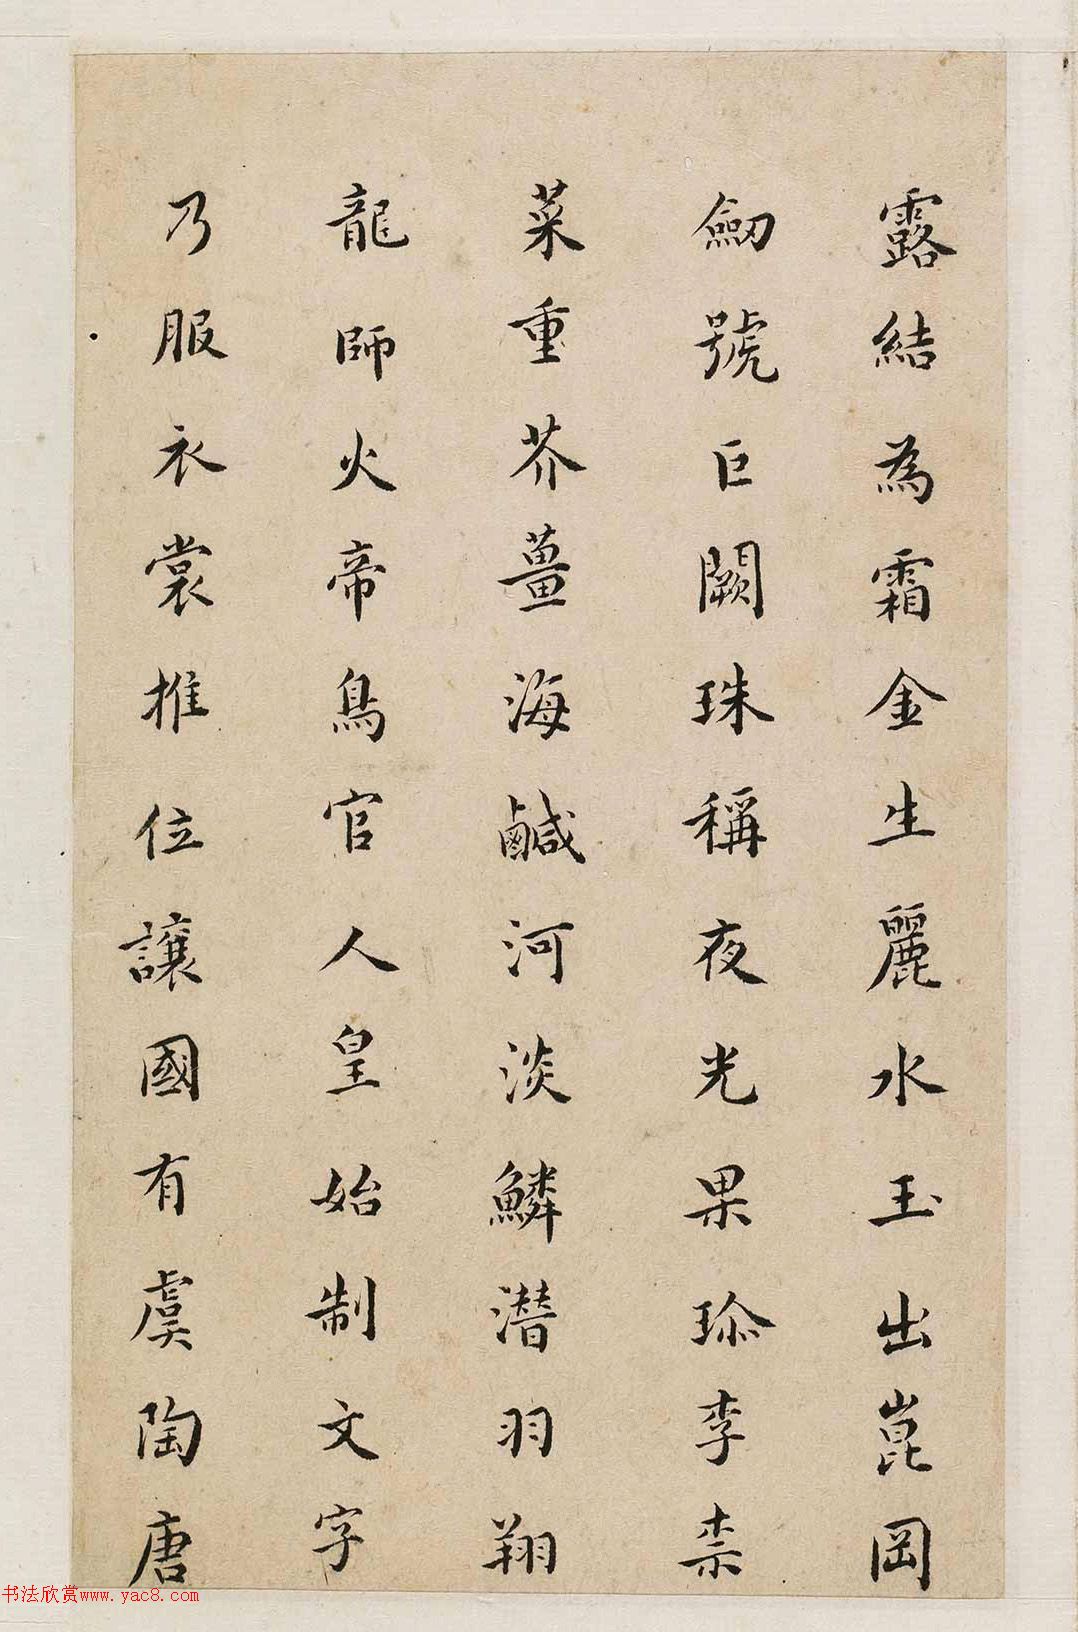 露結為霜金生麗水玉出崑岡
劒號巨闕珠稱夜光果珎李柰
菜重芥薑海鹹河淡鱗潛羽翔
龍師火帝鳥官人皇始制文字
乃服衣裳推位讓國有虞陶唐
书法欣赏www.yac8.com